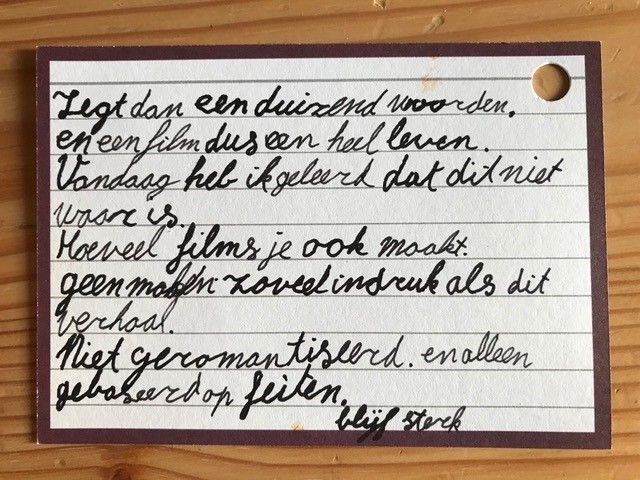 Zegt dan een duizend woorden.
en een film dus een heel leven.
Vandaag heb ik geleerd dat dit niet
waar is.
Hoeveel films je ook maakt.
geen zoveel indruk als dit
verhaal.
Niet geromantiseerd. en alleen
gebaseerd op feiten.
blijf sterk